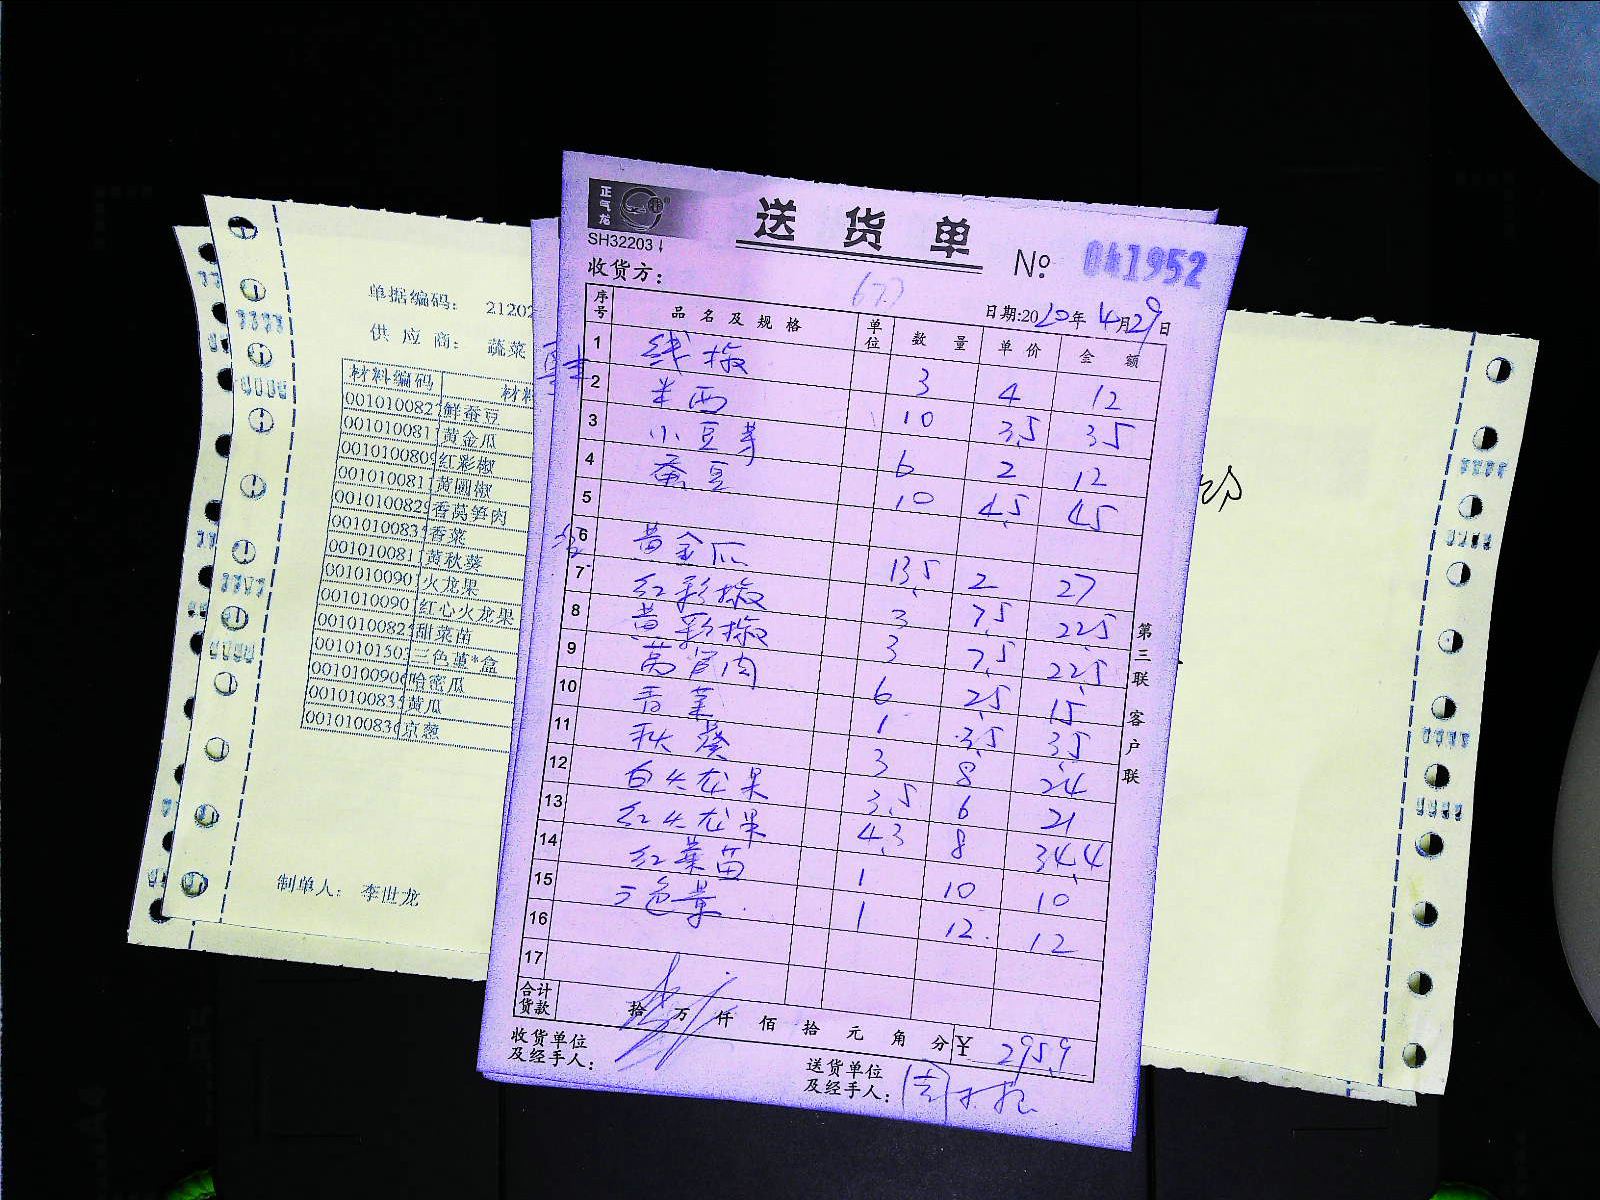 正气龙
送货单
SH32203
№ 041952
收货方：
677
日期:2020年4月29日
序号 品名及规格 单位 数量 单价 金额
1 线椒 3 4 12
2 米西 10 3.5 35
3 小豆芽 6 2 12
4 蚕豆 10 4.5 45
5
6 黄金瓜 13.5 2 27
7 红彩椒 3 7.5 22.5
8 黄彩椒 3 7.5 22.5
9 莴笋肉 6 2.5 15
10 香菜 1 3.5 3.5
11 秋葵 3 8 24
12 白火龙果 3.5 6 21
13 红火龙果 4.3 8 34.4
14 红菜苗 1 10 10
15 三色堇 1 12 12
16
17
合计货款 拾万仟佰拾元角分 ¥ 295.9
收货单位及经手人：
送货单位及经手人：
第三联 客户联
单据编码： 21202
供应商： 蔬菜
材料编码 材料
001010082 鲜蚕豆
001010081 黄金瓜
001010080 红彩椒
001010081 黄圆椒
001010082 香莴笋肉
001010083 香菜
001010081 黄秋葵
001010090 火龙果
001010090 红心火龙果
001010082 甜菜苗
001010150 三色堇*盒
001010090 哈密瓜
001010083 黄瓜
001010083 京葱
制单人： 李世龙